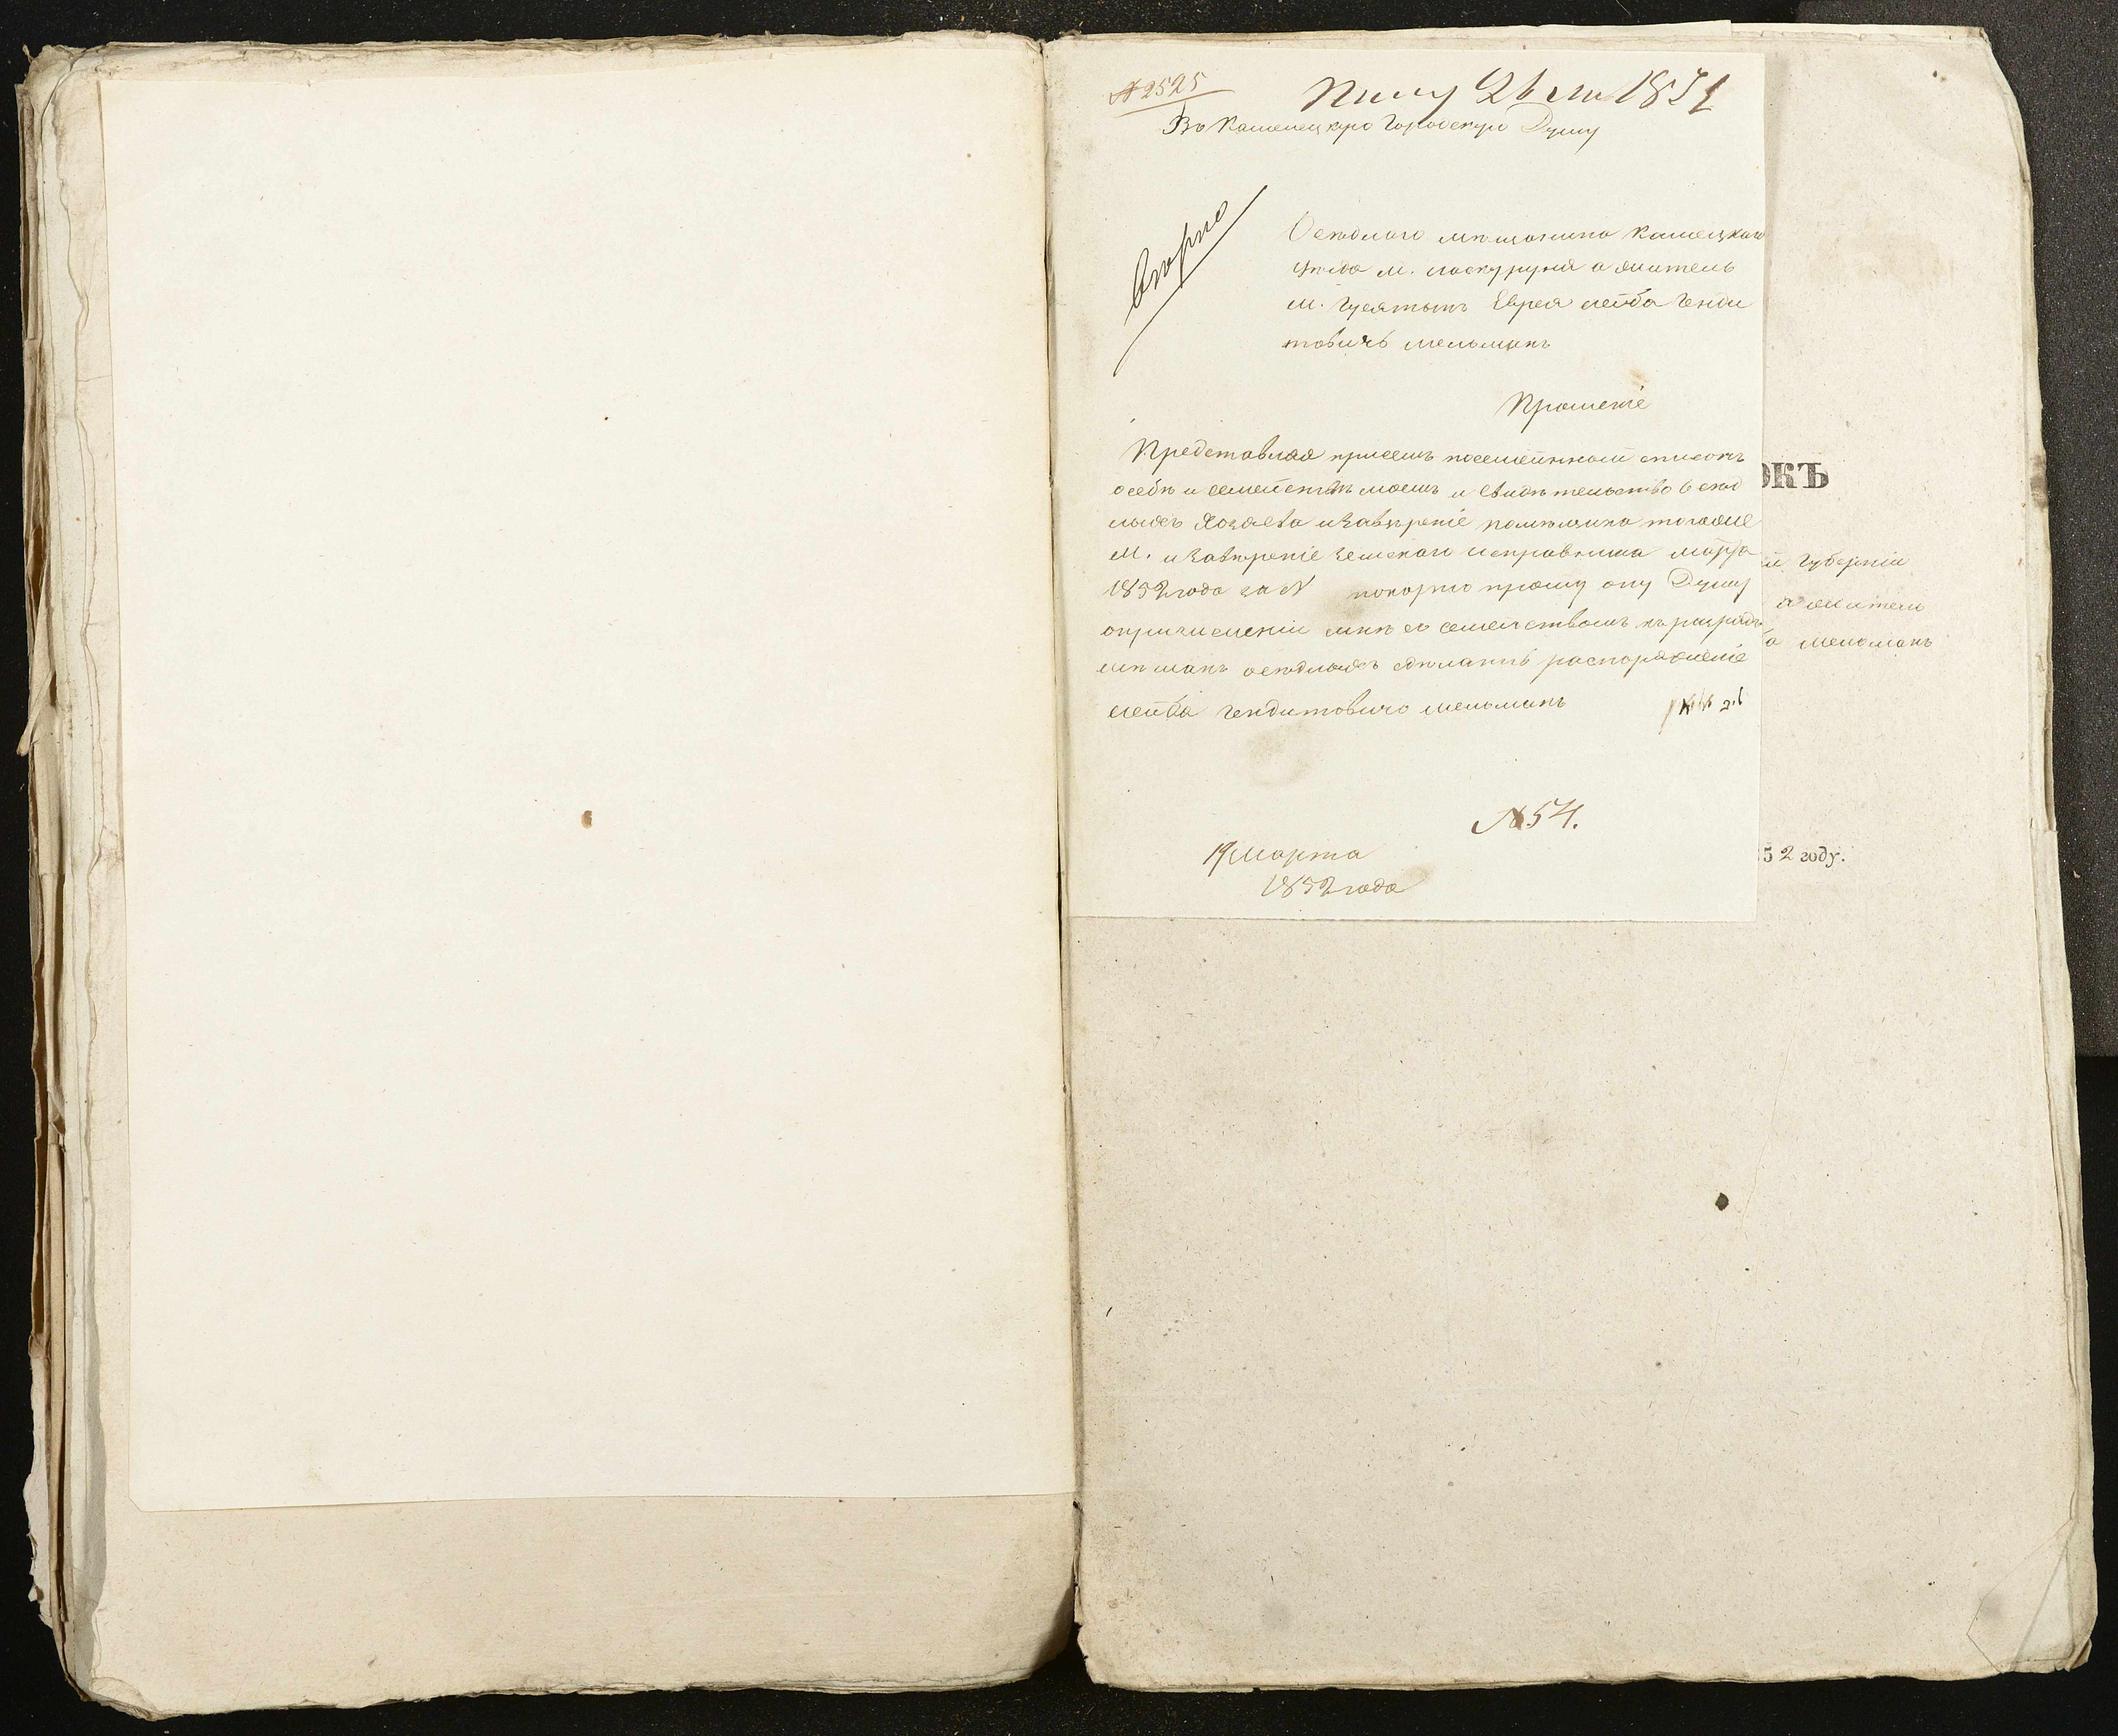 № 2525
Получ 26 Мар 1852
Въ Каменецкую Городскую Думу
Оседлаго мещанина Камецкаго
уезда м. а житель
м. Гусятынъ Еврея Лейба Генди
товичъ Мельманъ
Прошеніе
Представляя присемъ посемейный списокъ
осебѣ и семействѣ моемъ и свидѣтельство осѣд
лыхъ хозяева изавѣреніе помѣщика тогоже
М. изавѣреніе земскаго исправника марта
1852 года за № покорно прошу ону Думу
опричисленіи мнѣ съ семействомъ къ разряду
мѣщанъ осѣдлыхъ сдѣлать распоряженіе
Лейба Гендитовичъ Мельманъ
№ 54.
19 Марта
1852 года
ОКЪ
й Губерніи
а житель
а Мельманъ
52 году.